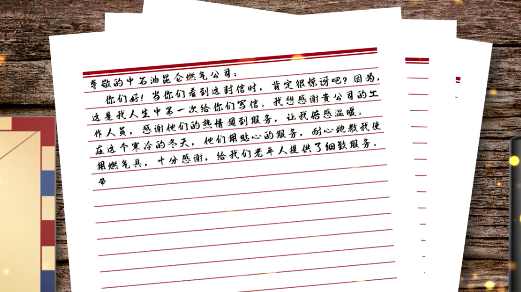 尊敬的中石油昆仑燃气公司：
你们好！当你们看到这封信时，肯定很惊讶吧？因为，
这是我人生中第一次给你们写信。我想感谢贵公司的工
作人员，感谢他们的热情周到服务，让我倍感温暖。
在这个寒冷的冬天，他们用贴心的服务，耐心地教我使
用燃气具，十分感谢，给我们老年人提供了细致服务。